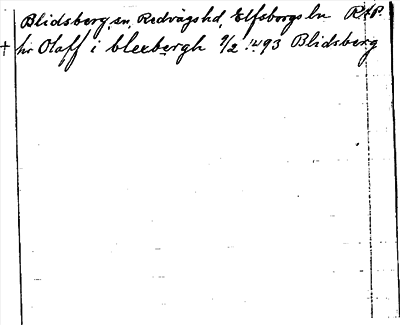 Blidsberg, sn, Redvägs hd, Elfsborgs ln RAP.
† hr Olaff i bleebergh 9/2 1493 Blidsberg